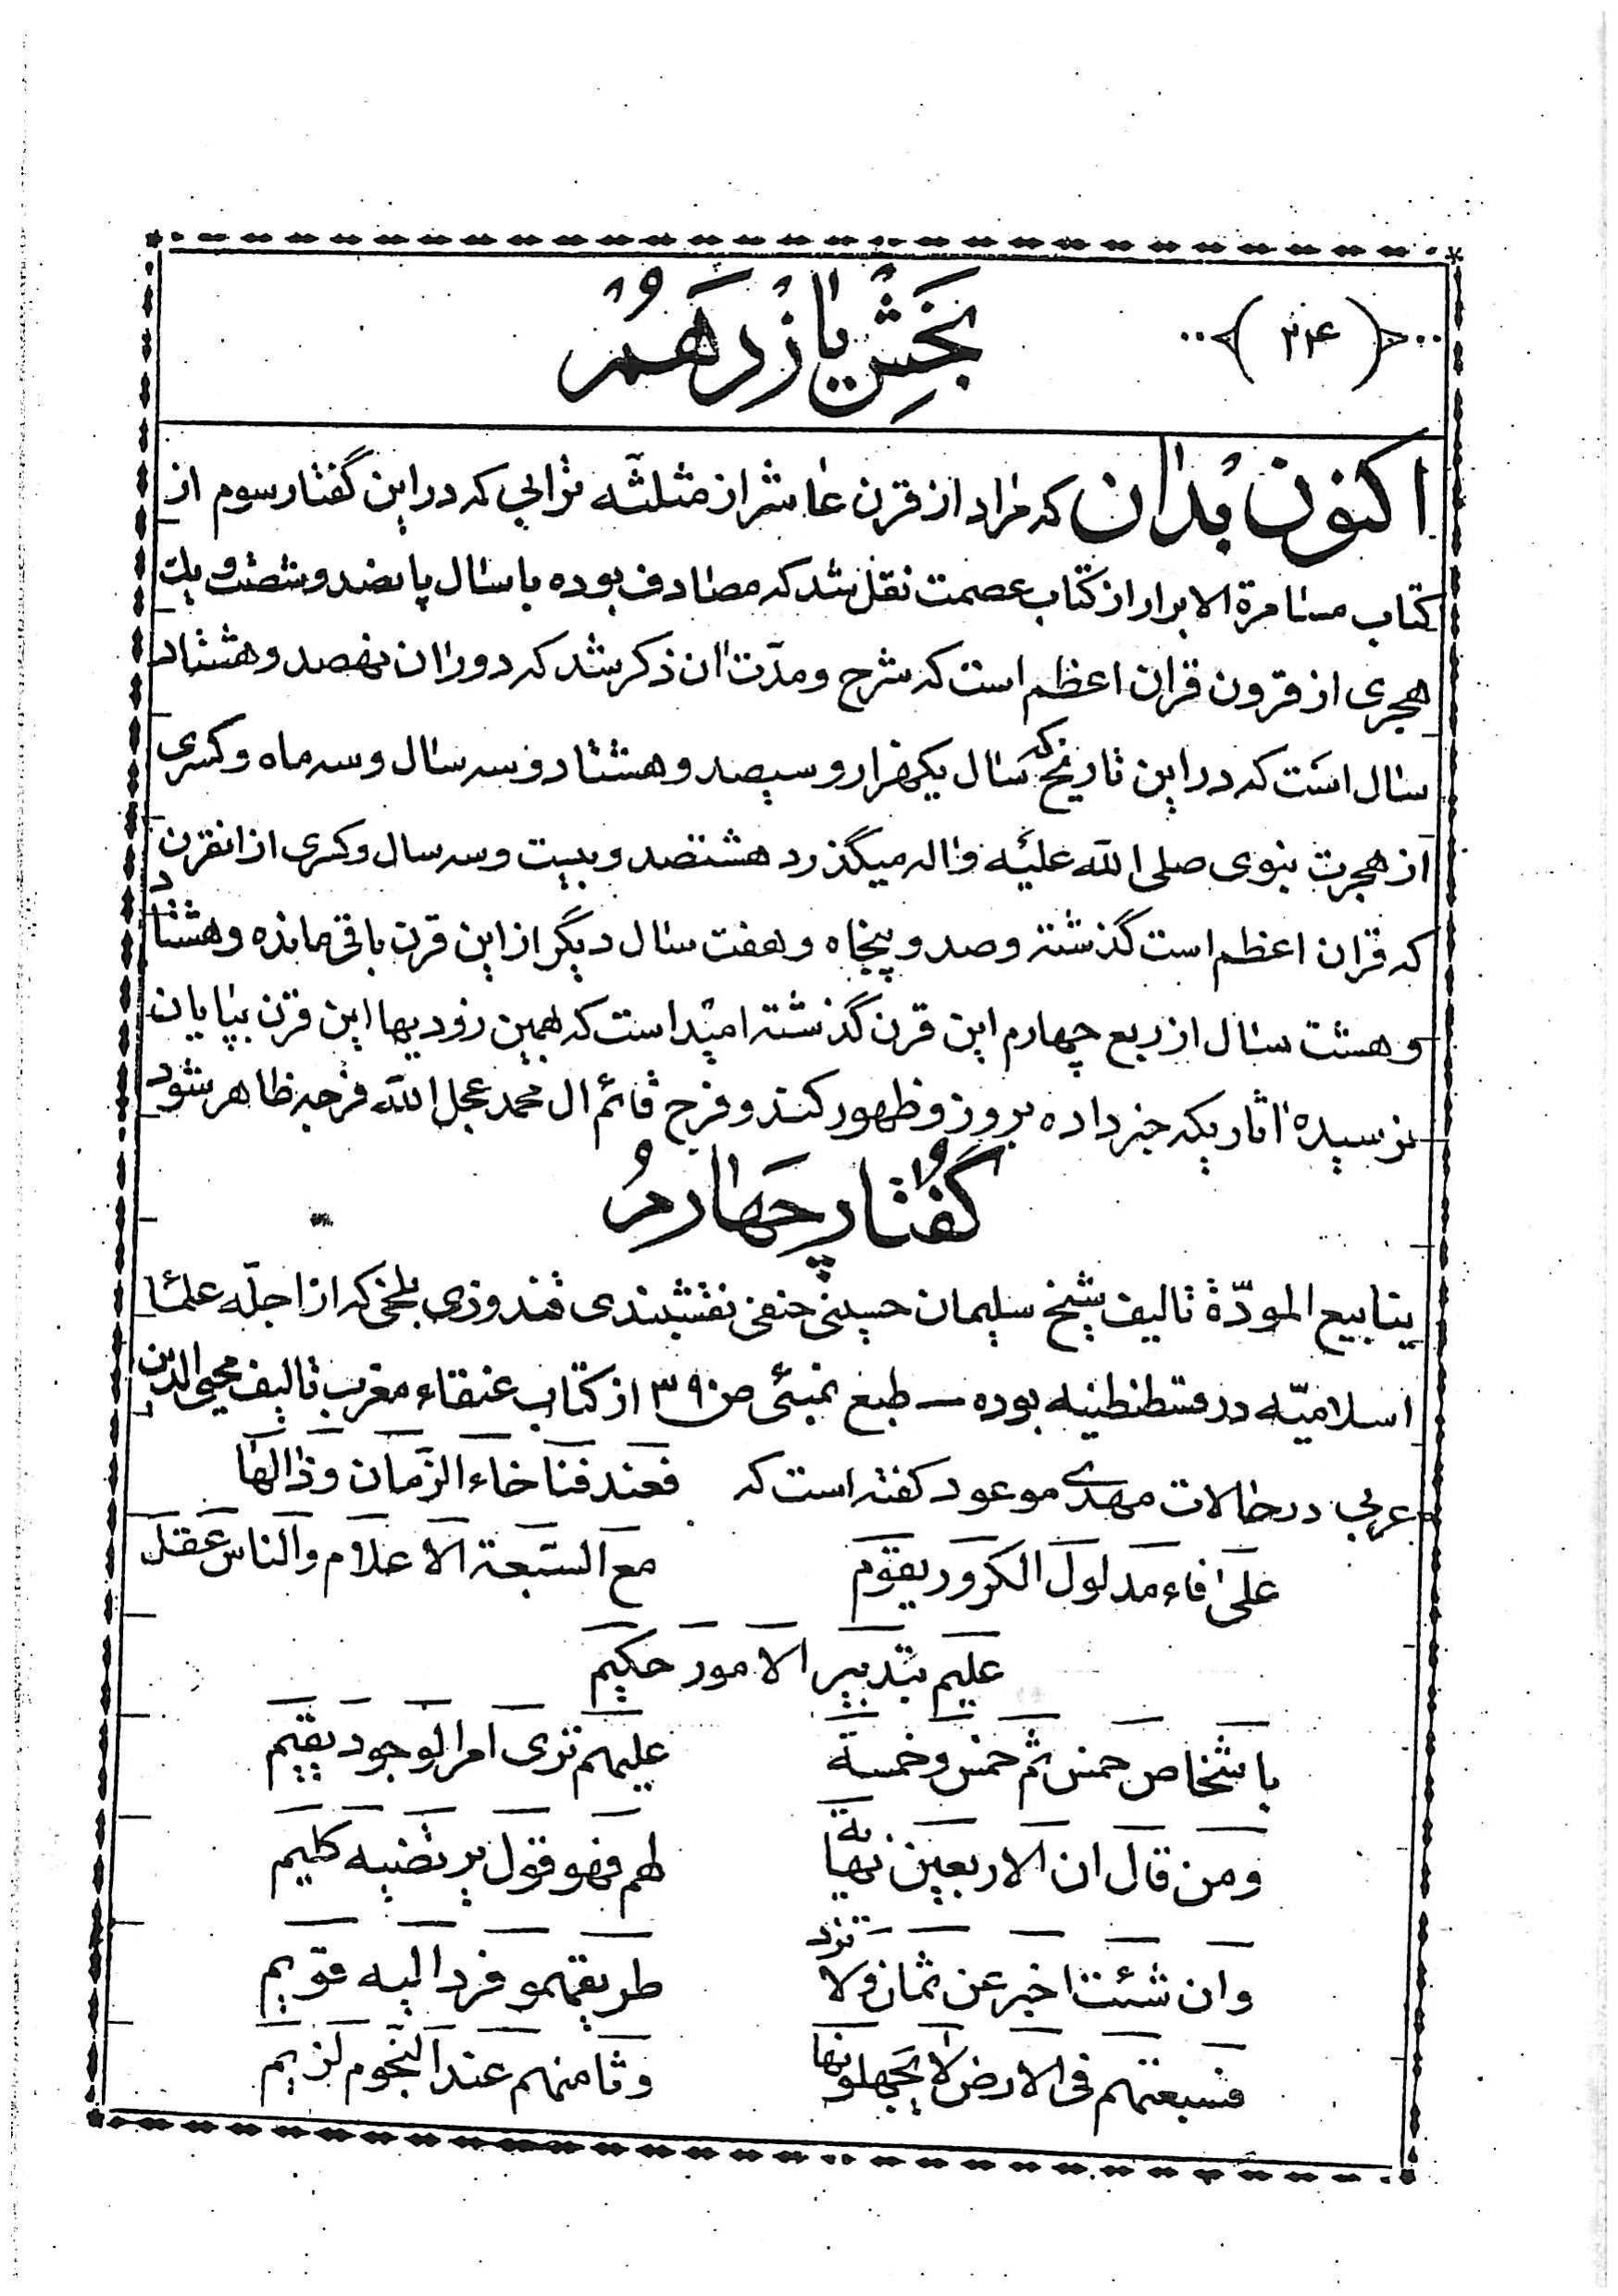 ﴿ ۲۴ ﴾
بخش یازدهم
اکنون بدان که مراد از قرن عاشر از مثلثه ترابی که در این گفتار سوم از
کتاب مسامرة الابرار از کتاب عصمت نقل شد که مصادف بوده با سال پانصد و شصت و یک
هجری از قرون قران اعظم است که شرح و مدت ان ذکر شد که دوران نهصد و هشتاد
سال است که در این تاریخ که سال یکهزار و سیصد و هشتاد و سه سال و سه ماه و کسری
از هجرت نبوی صلی الله علیه واله میگذرد هشتصد و بیست و سه سال و کسری از انقرن
که قران اعظم است گذشته و صد و پنجاه و هفت سال دیگر از این قرن باقی مانده و هشتاد
و هشت سال از ربع چهارم این قرن گذشته امید است که بهمین زودیها این قرن بپایان
نرسیده اثاریکه خبر داده بروز و ظهور کند و فرج قائم ال محمد عجل الله فرجه ظاهر شود
گفتار چهارم
ینابیع المودّة تالیف شیخ سلیمان حسینی حنفی نقشبندی قندوزی بلخی که از اجلّه علماء
اسلامیّه در قسطنطنیه بوده — طبع بمبئی ص ۳۹۰ از کتاب عنقاء مغرب تالیف محیی الدین
عربی در حالات مهدی موعود گفته است که فعند فنا خاء الزمان و ذالها
علی فاء مدلول الکرور یقوم مع السبعة الاعلام والناس غفل
علیم بتدبیر الامور حکیم
باشخاص خمس ثم خمس وخمسة علیهم تری امر الوجود یقیم
ومن قال ان الاربعین نهایة لهم فهو قول یرتضیه کلیم
وان شئت اخبر عن ثمان ولا تزد طریقهمو فرد الیه قویم
فسبعتهم فی الارض لا یجهلونها وثامنهم عند النجوم لزیم